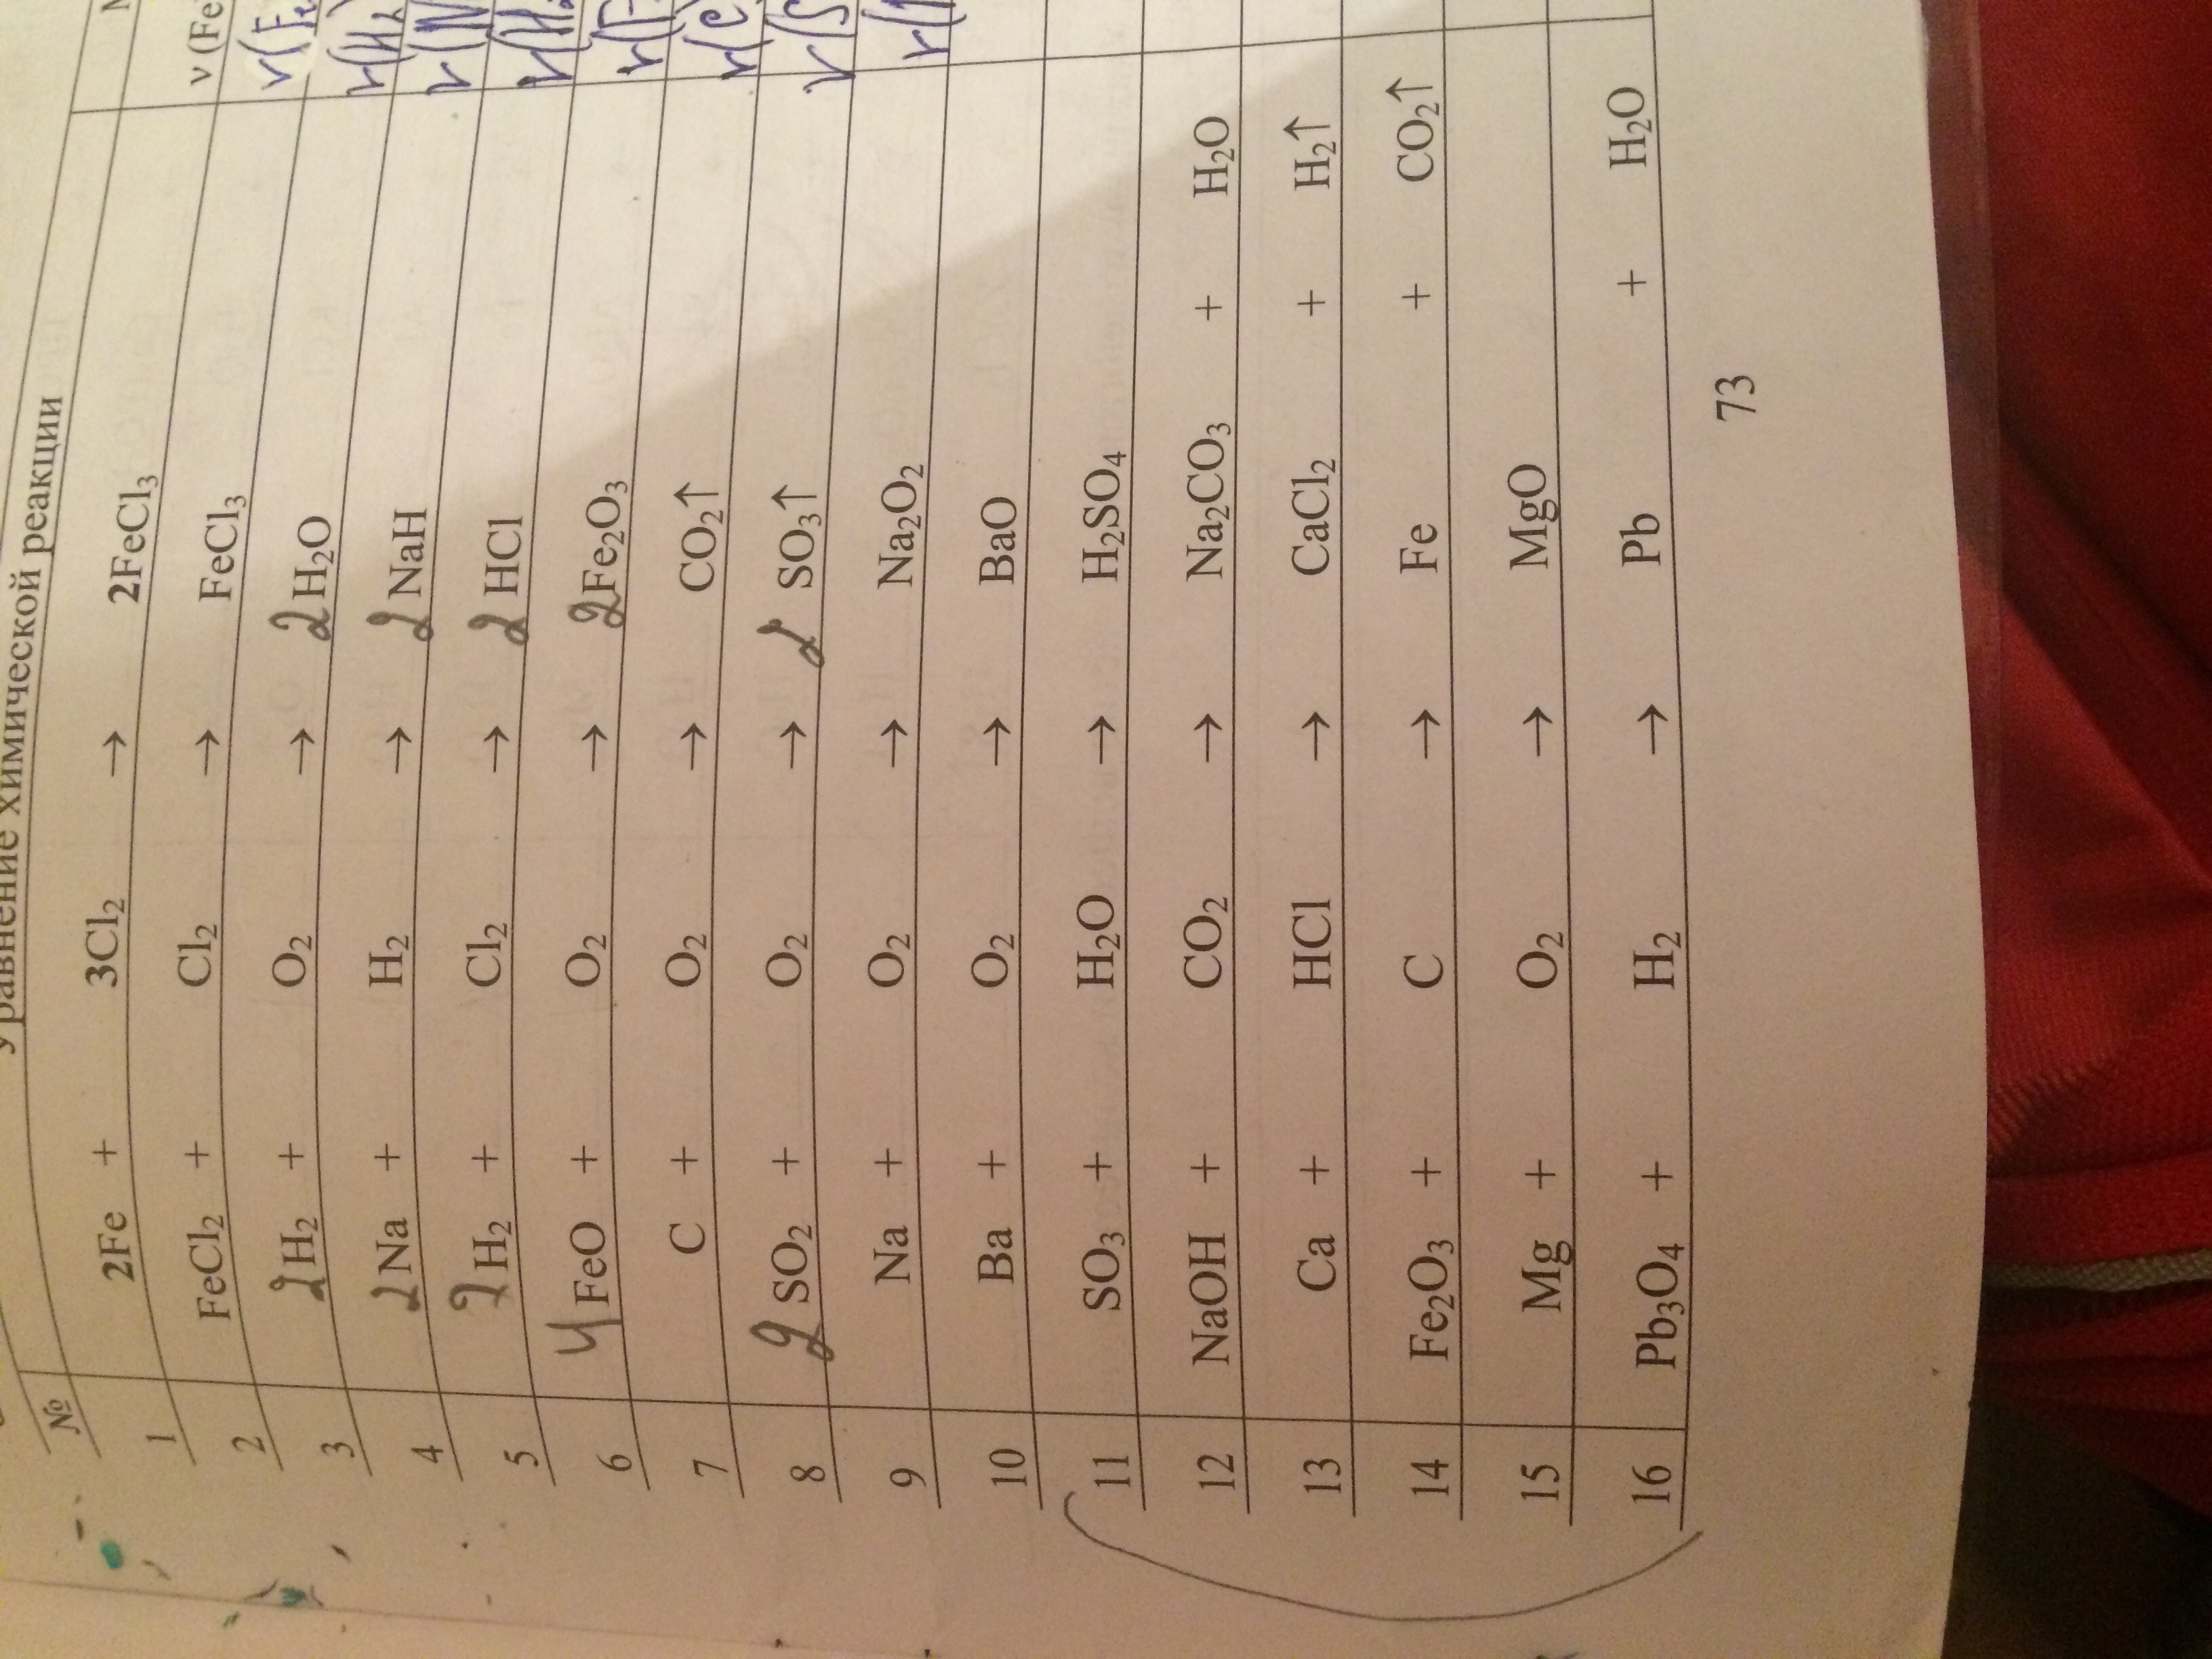 № Уравнение химической реакции
1 2Fe + 3Cl₂ → 2FeCl₃ ν (Fe
2 FeCl₂ + Cl₂ → FeCl₃ ν(Fe
3 2H₂ + O₂ → 2H₂O ν(H₂
4 2Na + H₂ → 2NaH ν(N
5 2H₂ + Cl₂ → 2HCl ν(H₂
6 4FeO + O₂ → 2Fe₂O₃ ν(F
7 C + O₂ → CO₂↑ ν(C
8 2SO₂ + O₂ → 2SO₃↑ ν(S
9 Na + O₂ → Na₂O₂
10 Ba + O₂ → BaO
11 SO₃ + H₂O → H₂SO₄
12 NaOH + CO₂ → Na₂CO₃ + H₂O
13 Ca + HCl → CaCl₂ + H₂↑
14 Fe₂O₃ + C → Fe + CO₂↑
15 Mg + O₂ → MgO
16 Pb₃O₄ + H₂ → Pb + H₂O
73